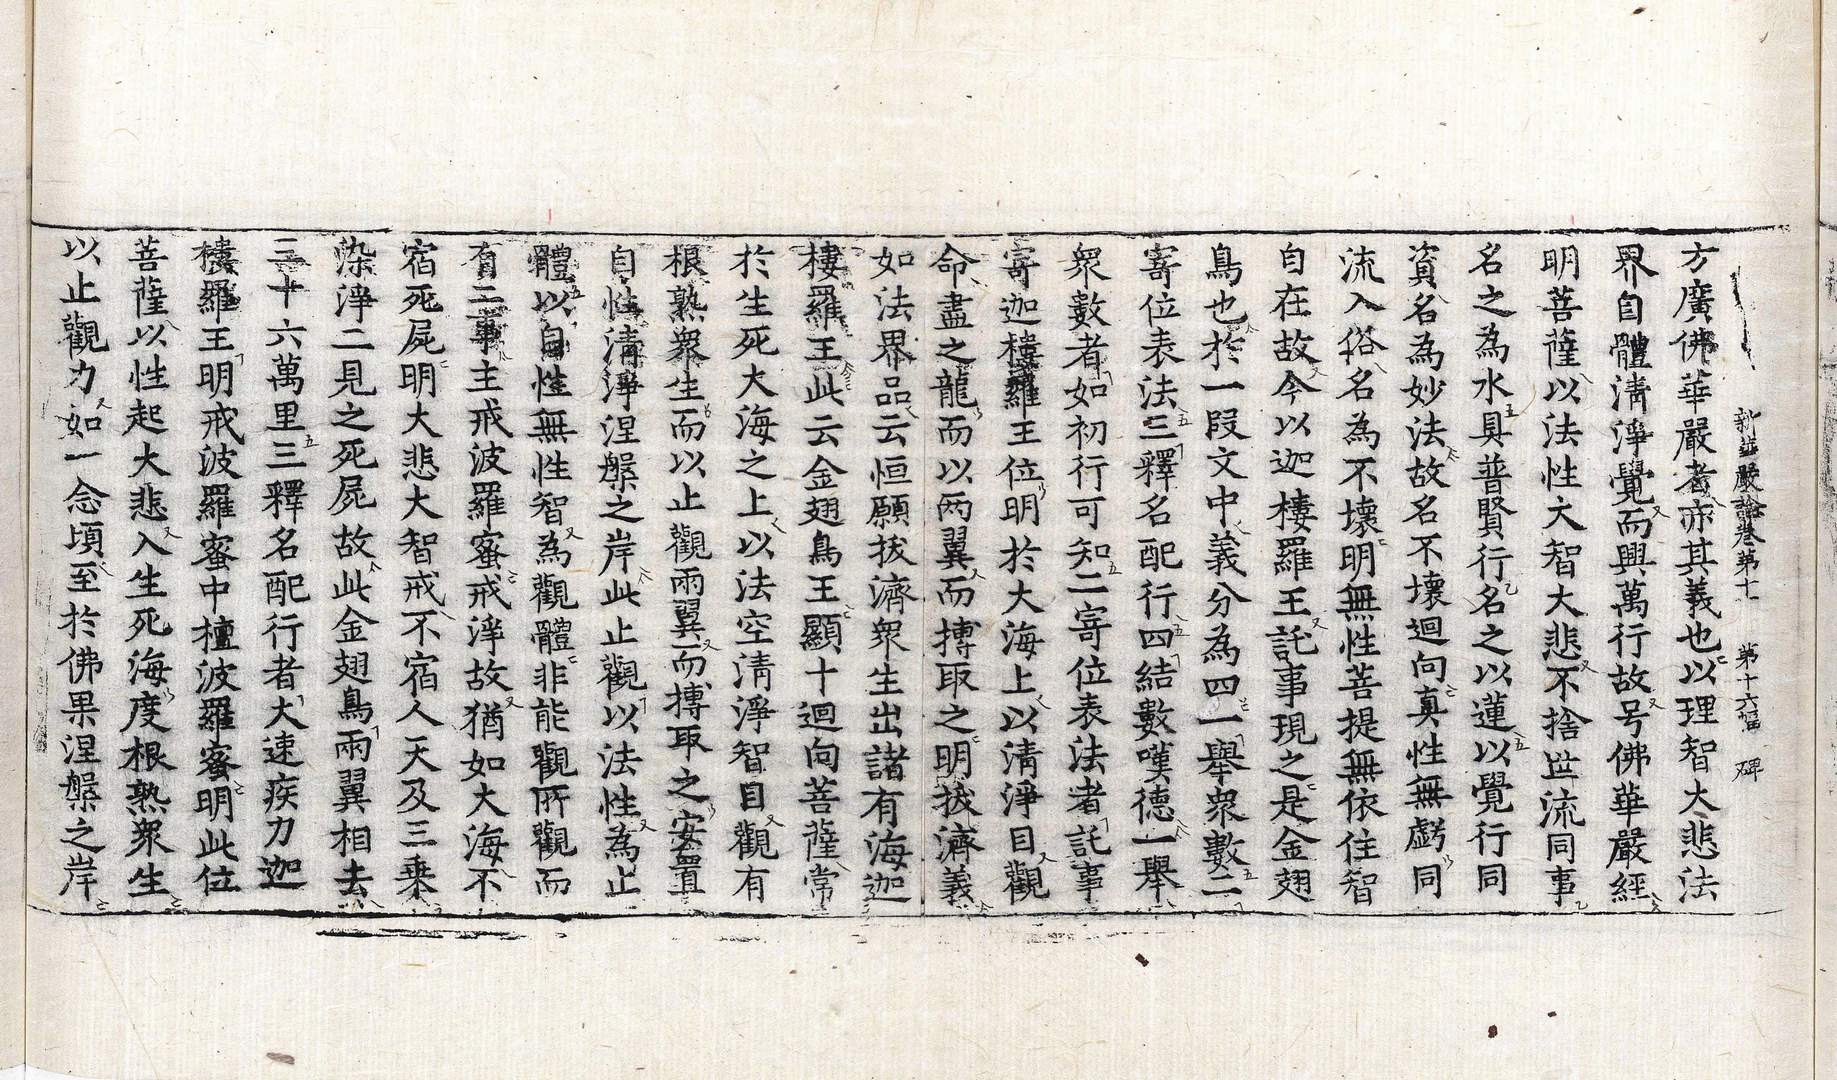 新華嚴論卷第十一 第十六幅 碑
方廣佛華嚴者亦其義也以理智大悲法
界自體清淨覺而興萬行故号佛華嚴經
明菩薩以法性大智大悲不捨世流同事
名之為水具普賢行名之以蓮以覺行同
資名為妙法故名不壞迴向真性無虧同
流入俗名為不壞明無性菩提無依住智
自在故今以迦樓羅王託事現之是金翅
鳥也於一段文中義分為四一舉衆數二
寄位表法三釋名配行四結數嘆德一舉
衆數者如初行可知二寄位表法者託事
寄迦樓羅王位明於大海上以清淨目觀
命盡之龍而以两翼而搏取之明拔濟義
如法界品云恒願拔濟衆生出諸有海迦
樓羅王此云金翅鳥王顯十迴向菩薩常
於生死大海之上以法空清淨智目觀有
根熟衆生而以止觀兩翼而搏取之安置
自性清淨涅槃之岸此止觀以法性為止
體以自性無性智為觀體非能觀所觀而
有二事主戒波羅蜜戒淨故猶如大海不
宿死屍明大悲大智戒不宿人天及三乗
染淨二見之死屍故此金翅鳥兩翼相去
三十六萬里三釋名配行者大速疾力迦
樓羅王明戒波羅蜜中檀波羅蜜明此位
菩薩以性起大悲入生死海度根熟衆生
以止觀力如一念頃至於佛果涅槃之岸